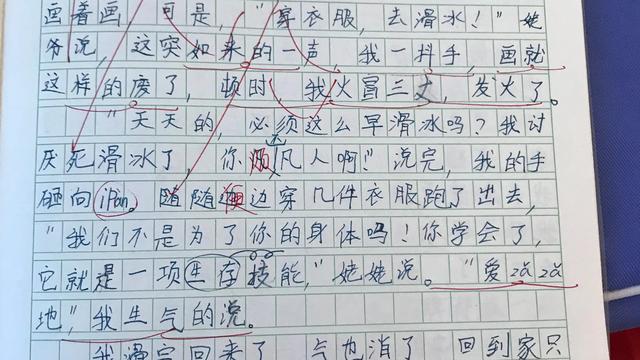 画着画，可是，“穿衣服，去滑冰！”姥
爷说，这突如来的一声，我一抖手，画就
这样的废了，顿时，我火冒三丈，发火了。
“天天的，必须这么早滑冰吗？我讨
厌死滑冰了，你烦凡人啊！”说完，我的手
砸向iPan。随随便边穿几件衣服跑了出去，
“我们不是为了你的身体吗！你学会了，
它就是一项生存技能，”姥姥说。“爱
地，”我生气的说。
我滑完回来了，气也消了，回到家只